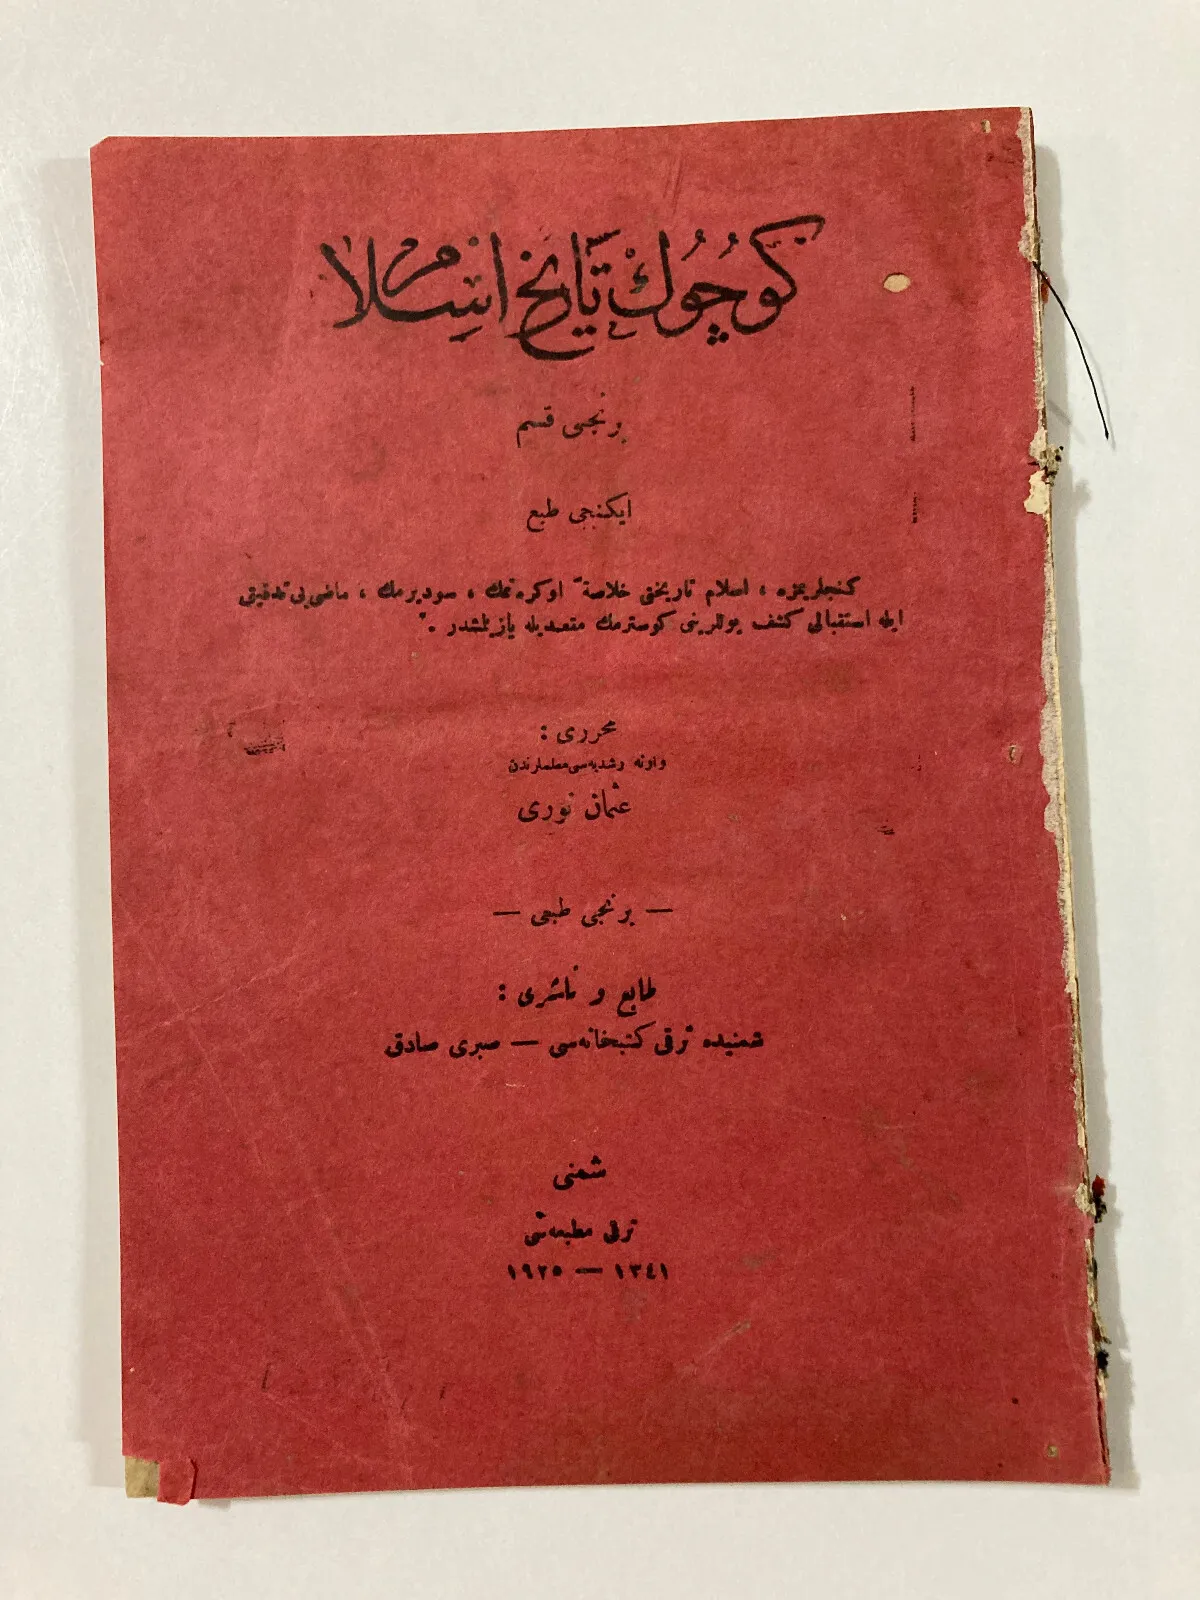 كوچوك تاريخ اسلام
برنجى قسم
ايكنجى طبع
كنجلريمزه ، اسلام تاريخنى خلاصةً اوكره تمك ، سوديرمك ، ماضى يى تدقيق
ايله استقبالى كشف يوللرينى كوسترمك مقصديله يازيلمشدر .
محررى :
وارنه رشديه‌سى معلملرندن
عثمان نورى
— برنجى طبعى —
طابع و ناشرى :
شمنيده ترقى كتبخانه‌سى — صبرى صادق
شمنى
ترقى مطبعه‌سى
١٣٤١ — ١٩٢٥